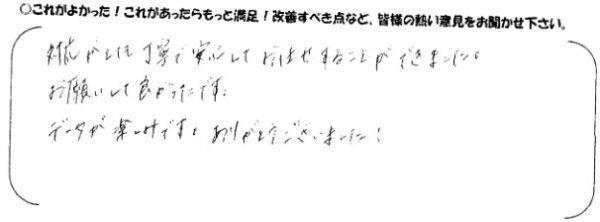 ○これがよかった！これがあったらもっと満足！改善すべき点など、皆様の熱い意見をお聞かせ下さい。
対応がとても丁寧で安心してお任せすることができました。
お願いして良かったです。
データが楽しみです！ありがとうございました！